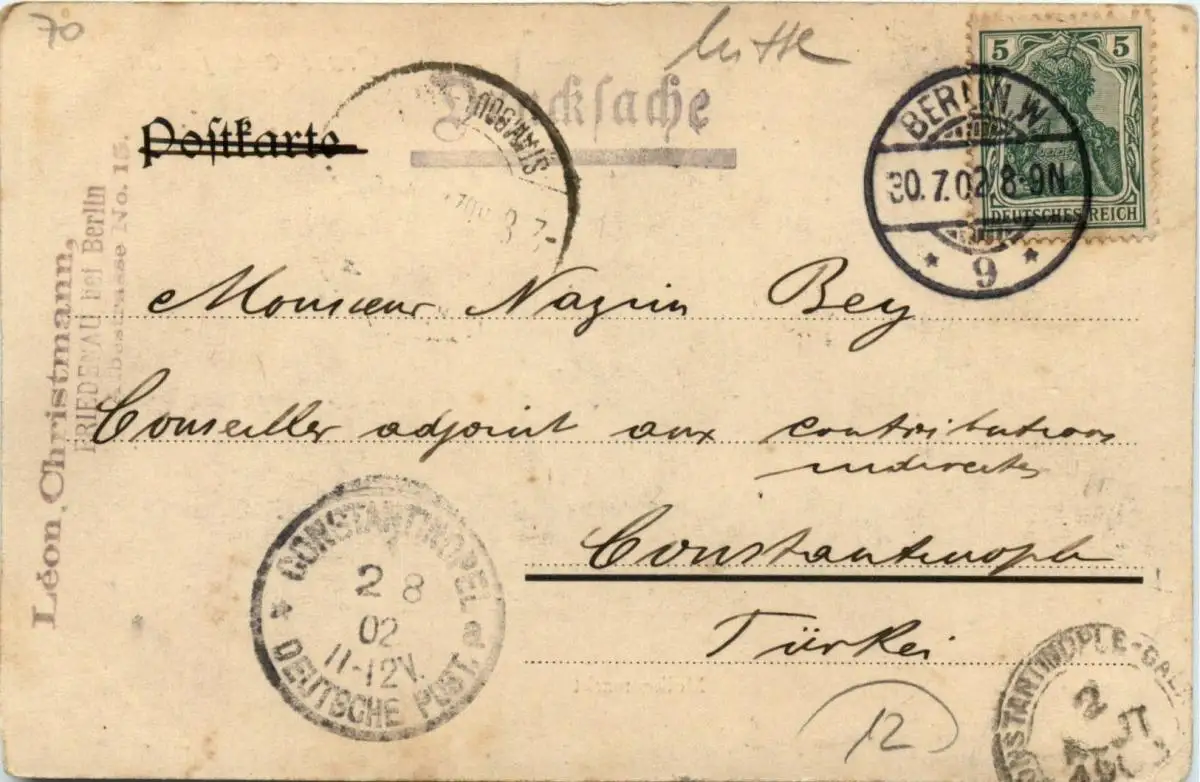 70
5 5
DEUTSCHES REICH
Postkarte
Drucksache
STAMBOUL
BERLIN, W.
30.7.02 8-9N
* 9 *
Léon Christmann,
FRIEDENAU bei Berlin
No. 15.
Monsieur Nazim Bey
Conseiller adjoint aux contributions
indirectes
Constantinople
Türkei
CONSTANTINOPEL
2 8
02
11-12V.
DEUTSCHE POST.
CONSTANTINOPLE-GAL
2
12